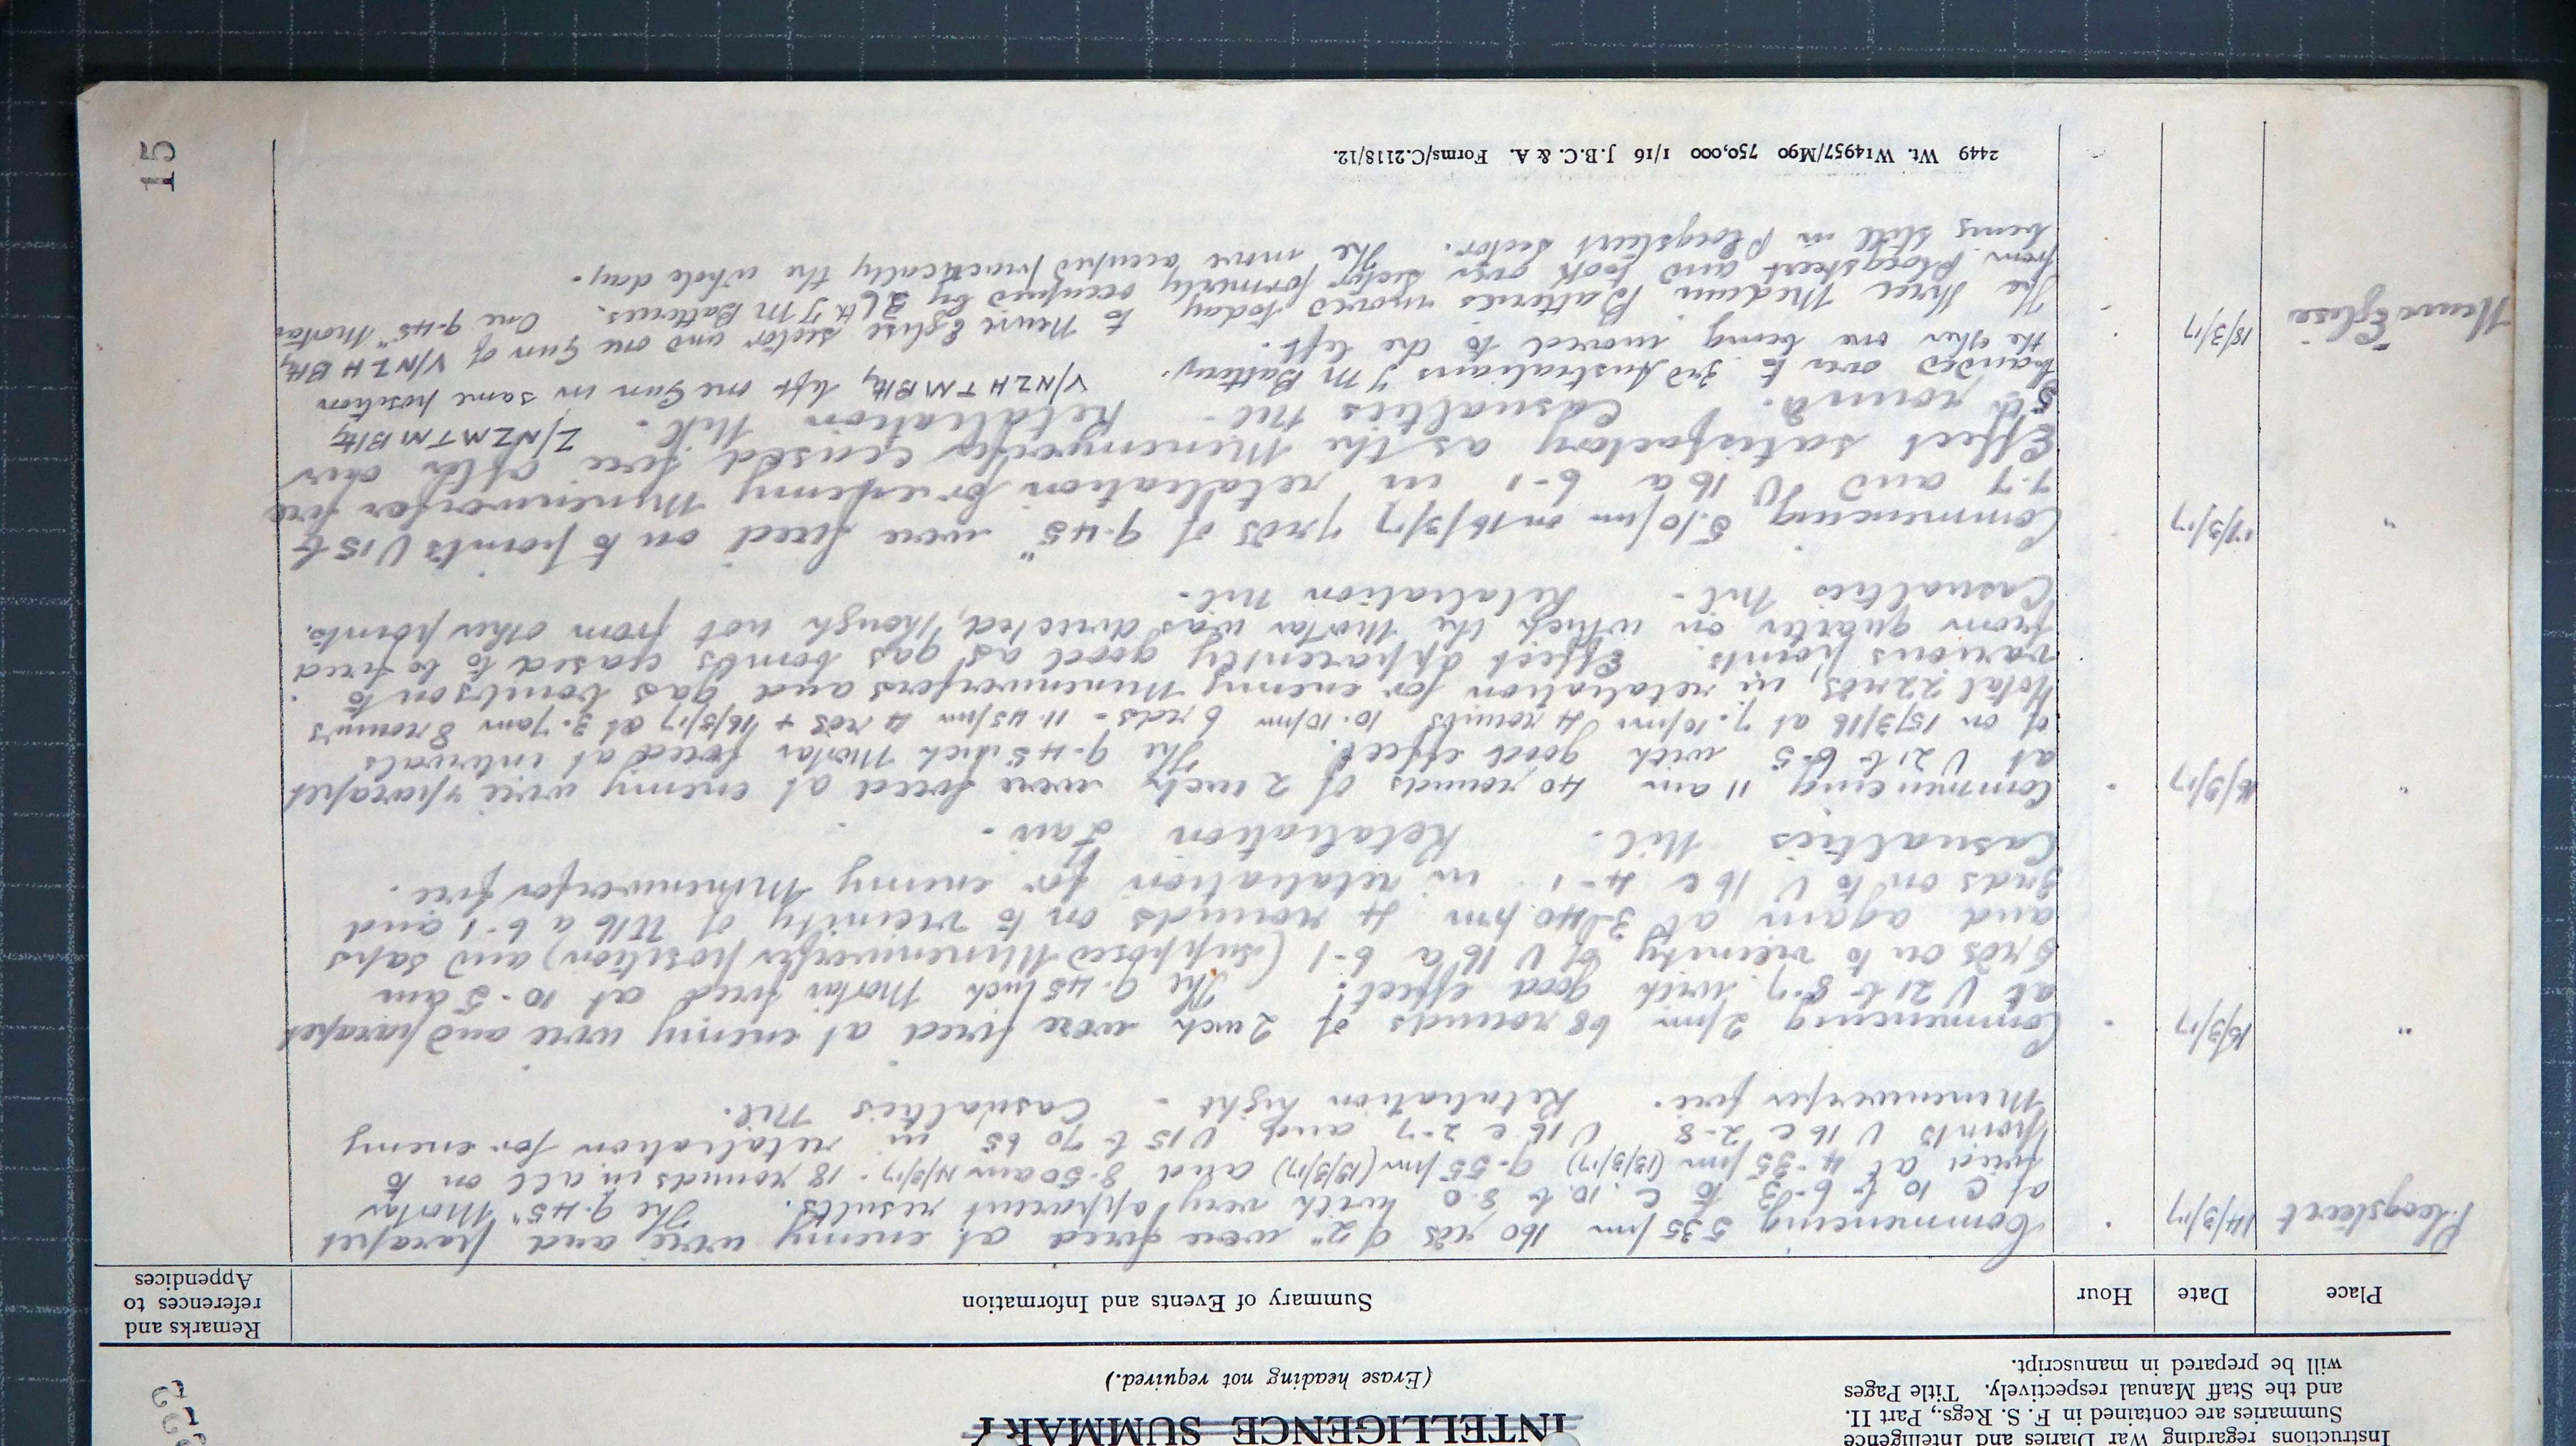 Instructions regarding War Diaries and Intelligence
Summaries are contained in F. S. Regs., Part II.
and the Staff Manual respectively. Title Pages
will be prepared in manuscript.
INTELLIGENCE SUMMARY
(Erase heading not required.)
Place
Date
Hour
Summary of Events and Information
Remarks and
references to
Appendices
Ploegsteert
14/3/17
Commencing 5 35 pm 160 rds of 2" were fired at enemy wire and parapet
at C 10 b 6-3 to C. 10. b 8.0 with very apparent results. The 9.45" Mortar
fired at 4-35 pm (13/3/17) 9-55 pm (13/3/17) and 8-50 am 14/3/17 - 18 rounds in all on to
points U 16 c 2-8 U 16 c 2-7 and U 15 b 70 65 in retaliation for enemy
Minenwerfer fire. Retaliation light - Casualties Nil.
"
15/3/17
Commencing 2 pm 68 rounds of 2 inch were fired at enemy wire and parapet
at U 21 b 8.7 with good effect. The 9.45 inch Mortar fired at 10-5 am
5 rds on to vicinity of U 16 a 6-1 (supposed Minenwerfer position) and saps
and again at 3-40 pm 4 rounds on to vicinity of U16 a 6-1 and
3 rds on to U 16 c 4-1 in retaliation for enemy Minenwerfer fire.
Casualties Nil. Retaliation Fair.
"
16/3/17
Commencing 11 am 40 rounds of 2 inch were fired at enemy wire & parapet
at U 21 b 6-5 with good effect. The 9.45 inch Mortar fired at intervals
of on 15/3/16 at 7.10 pm 4 rounds 10.10 pm 6 rds - 11.45 pm 4 rds & 16/3/17 at 3.7 am 8 rounds
total 22 rds, in retaliation for enemy Minenwerfers and gas bombs on to
various points. Effect apparently good as gas bombs ceased to be fired
from quarter on which the Mortar was directed, though not from other points.
Casualties Nil - Retaliation Nil.
"
17/3/17
Commencing 5.10 pm on 16/3/17 7 rds of 9.45" were fired on to points U 15 b
7.7 and U 16 a 6-1 in retaliation for enemy Minenwerfer fire
Effect satisfactory as the Minenwerfer ceased fire after our
5th round. Casualties Nil - Retaliation Nil. Z/NZMTMBtty
handed over to 3rd Australians TM Battery. V/NZHTMBtty left one Gun in same position
the other one being moved to the left.
Neuve Eglise
18/3/17
The three Medium Batteries moved today to Neuve Eglise sector and one Gun of V/NZH Btty
from Ploegsteert and took over sector formerly occupied by 36th TM Batteries. One 9.45" Mortar
being still in Ploegsteert sector. The move occupied practically the whole day.
2449 Wt. W14957/M90 750,000 1/16 J.B.C. & A. Forms/C.2118/12.
15